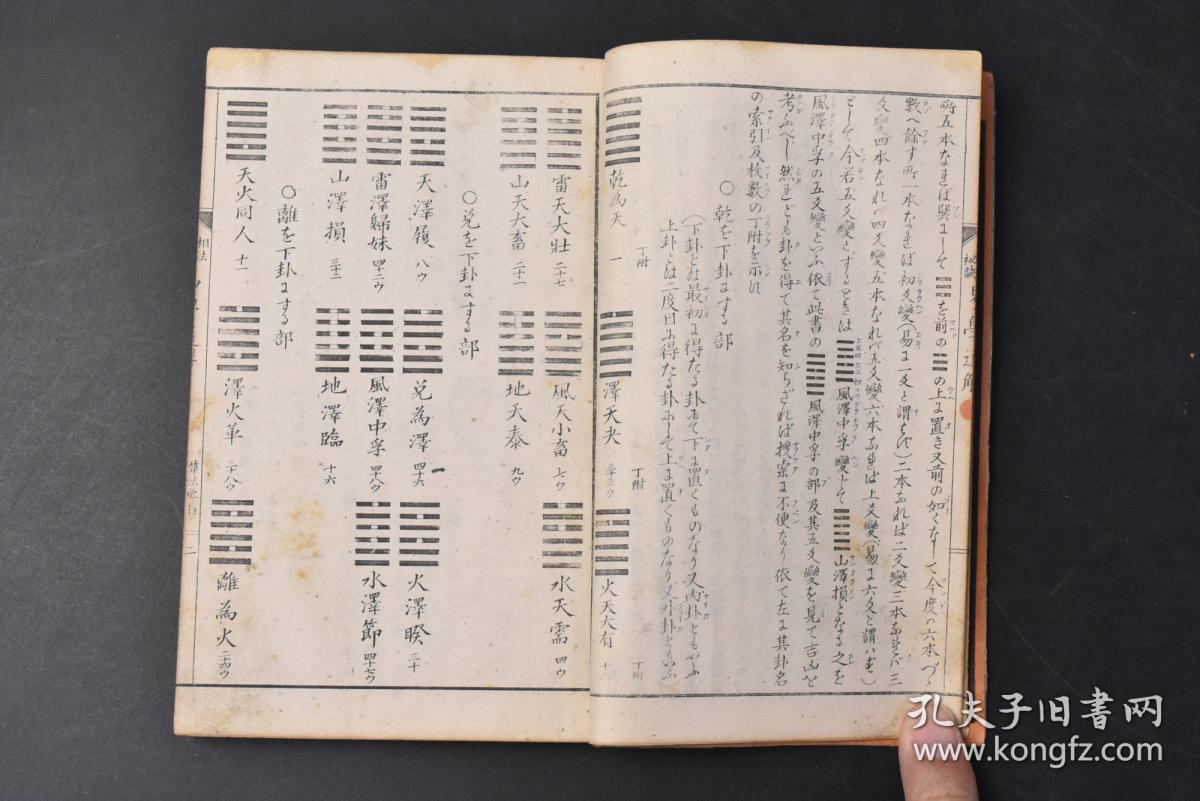 所五本なれば巽にして☴を前の☱の上に置き又前の如くなして今度ハ六本づゝ
數へ餘す所一本なれば初爻變(易に一爻と謂はず)二本なれば二爻變三本なれバ三
爻變四本なれバ四爻變五本なれバ五爻變六本なれば上爻變(易に六爻と謂ハず)
として今若五爻變とするときは風澤中孚變して山澤損となる之を
風澤中孚の五爻變といふ依て此書の風澤中孚の部及其五爻變を見て吉凶を
考ふべし然れども卦を得て其名を知らざれば搜索に不便なり依て左に其卦名
の索引及枚數の丁附を示す
○乾を下卦にする部
(下卦とは最初に得たる卦にて下に置くものなり又内卦ともいふ
上卦とは二度目に得たる卦にして上に置くものなり又外卦といふ)
乾為天 一 丁附
澤天夬 三十三ウ 丁附
火天大有 十 丁附
雷天大壯 二十七
風天小畜 七ウ
水天需 四ウ
山天大畜 二十一
地天泰 九ウ
○兌を下卦にする部
天澤履 八ウ
兌為澤 四十六
火澤睽 三十
雷澤歸妹 四十二ウ
風澤中孚 四十八ウ
水澤節 四十七ウ
山澤損 三十二
地澤臨 十六
○離を下卦にする部
天火同人 十一
澤火革 三十八ウ
離為火 二十四ウ
孔夫子旧书网
www.kongfz.com